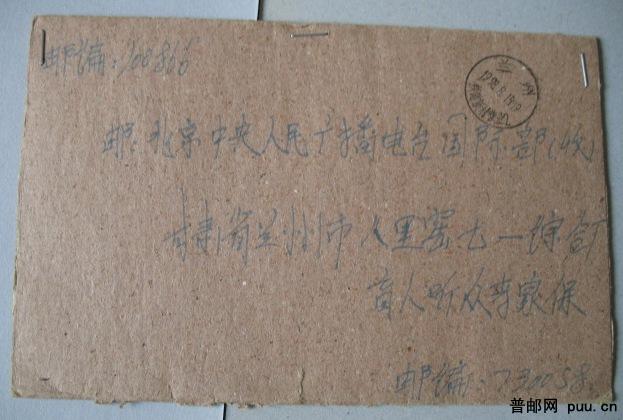 邮编:100866
兰州
邮:北京中央人民广播电台国际部(收)
甘肃省兰州市八里窑七一综合厂
盲人听众李家保
邮编:730058
普邮网 puu.cn